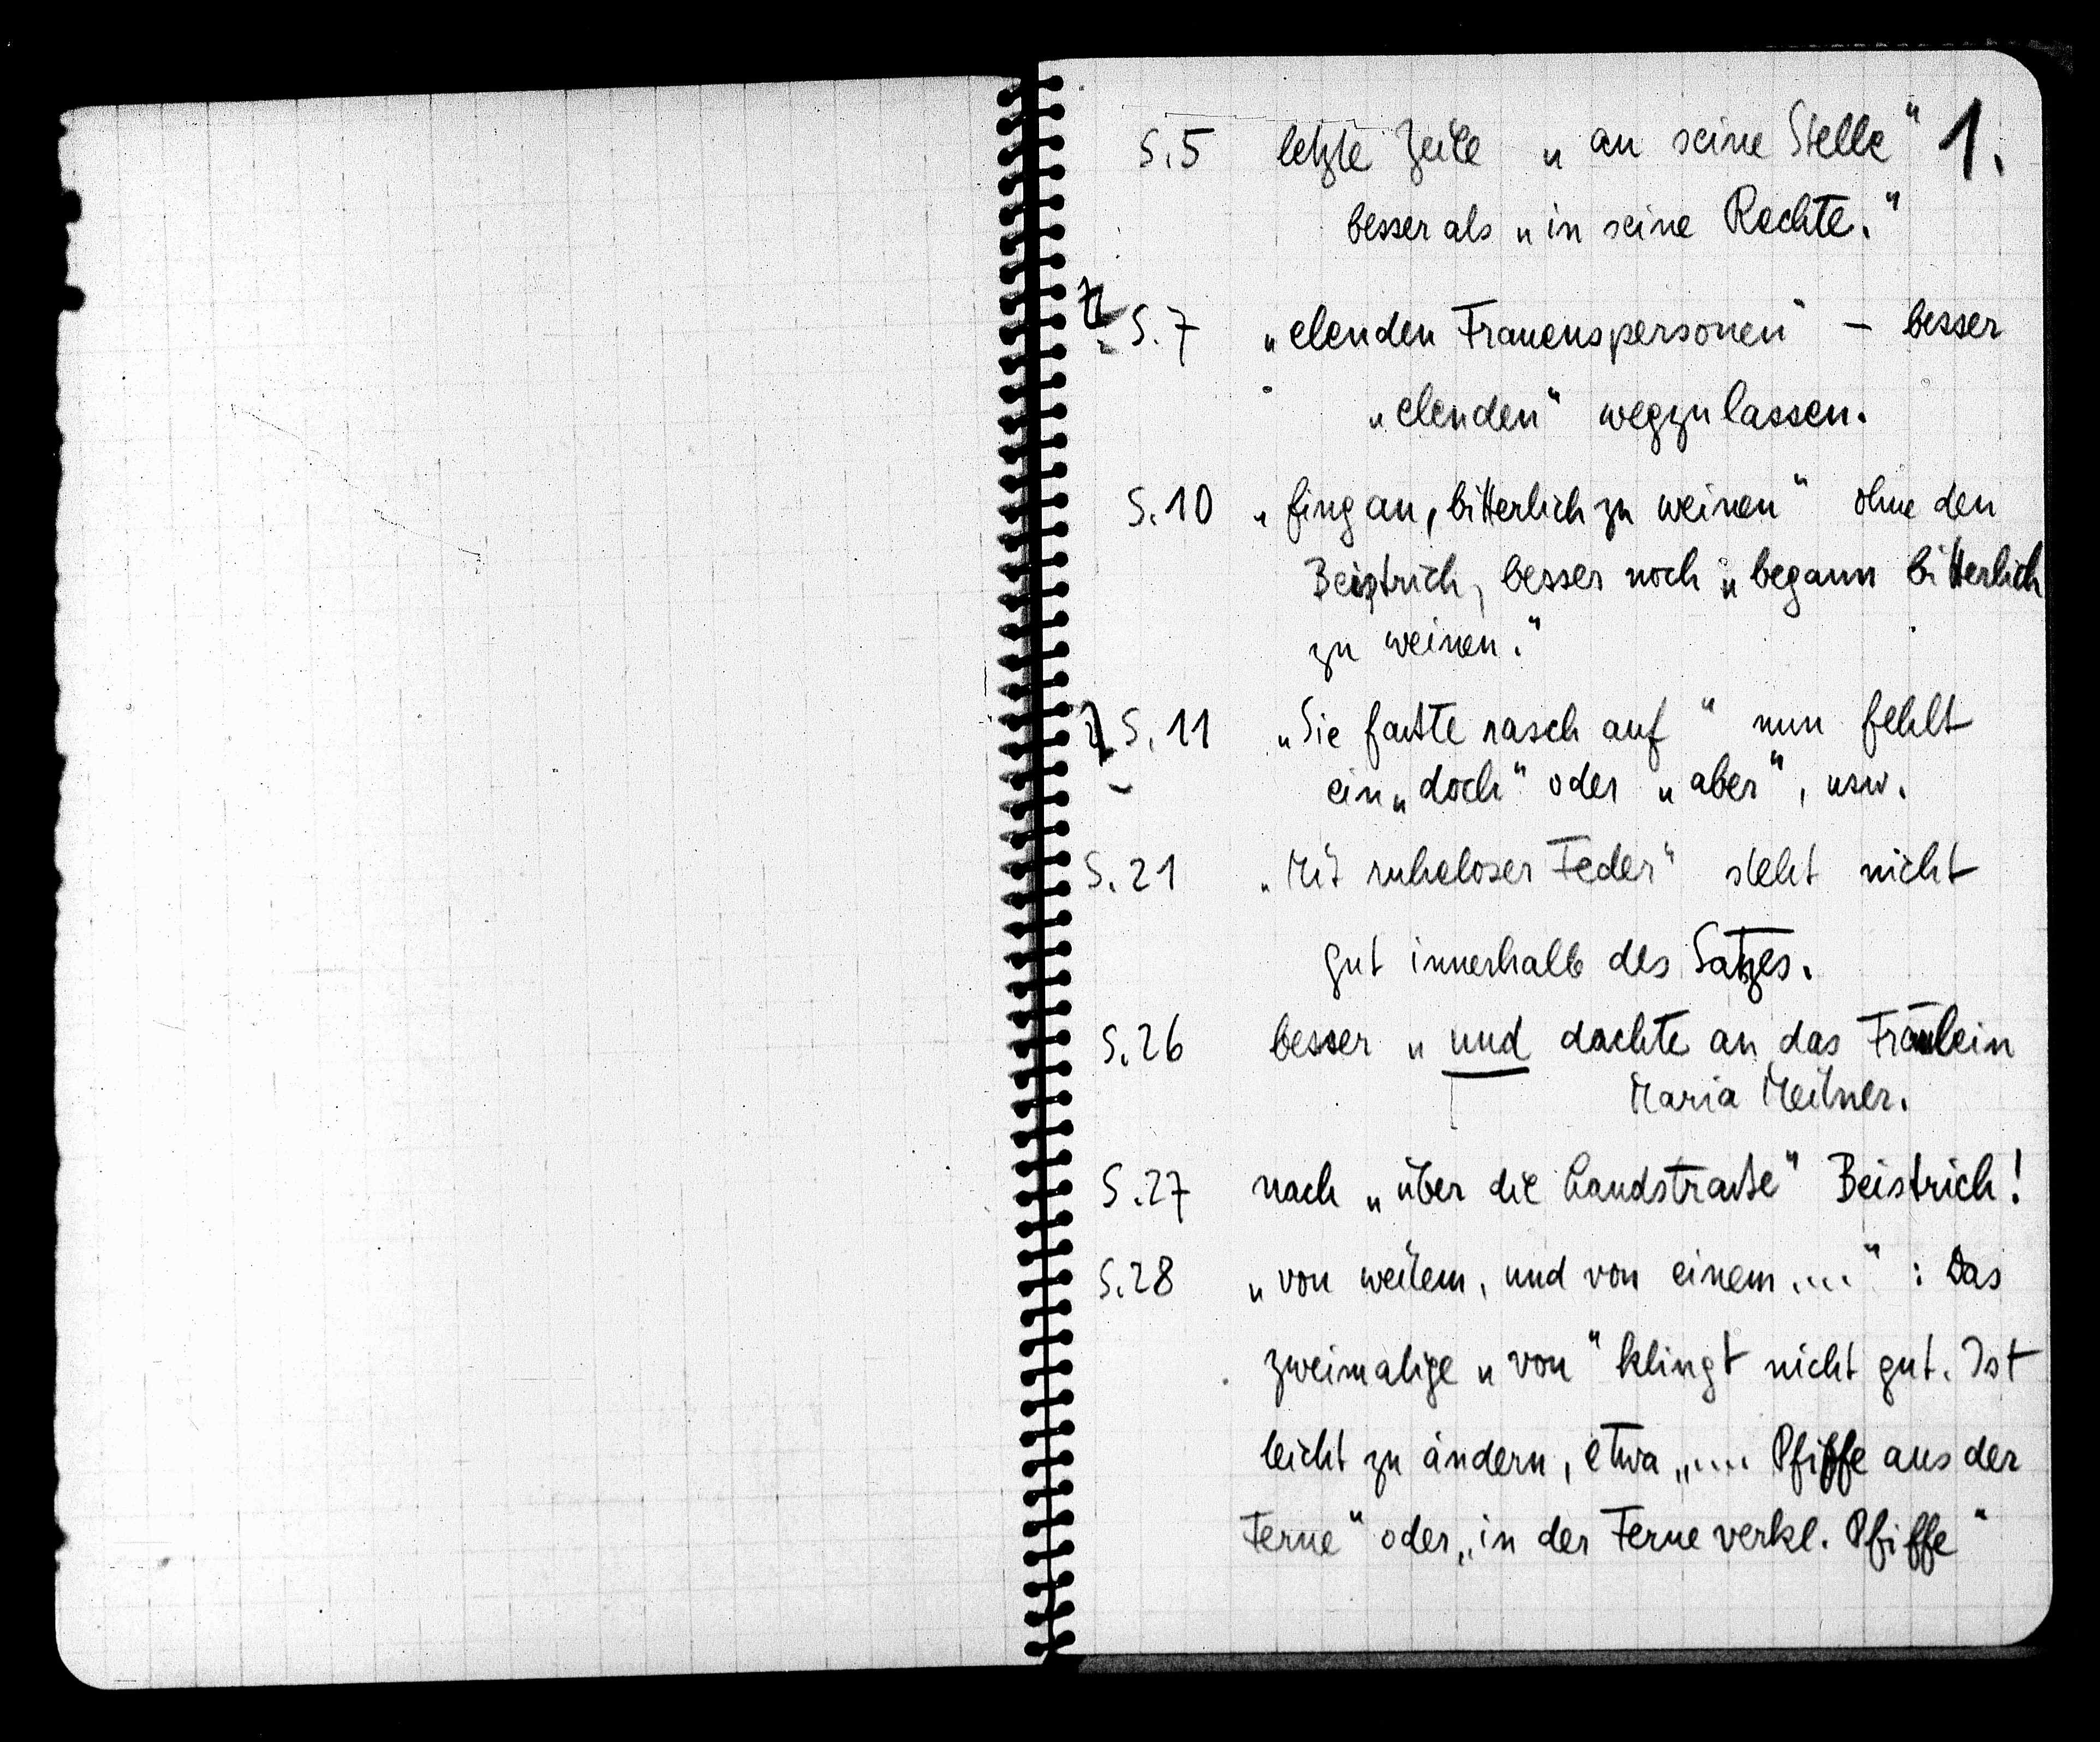 S.5 letzte Zeile „an seine Stelle“ 1.
besser als „in seine Rechte.“
S.7 „elenden Frauenspersonen“ – besser
„elenden“ wegzulassen.
S.10 „fing an, bitterlich zu weinen“ ohne den
Beistrich, besser noch „begann bitterlich
zu weinen.“
S.11 „Sie faßte rasch auf“ nun fehlt
ein „doch“ oder „aber“, usw.
S.21 „Mit ruheloser Feder“ steht nicht
gut innerhalb des Satzes.
S.26 besser „und dachte an das Fräulein
Maria
S.27 nach „über die Landstraße“ Beistrich!
S.28 „von weitem, und von einem ...“ : Das
zweimalige „von“ klingt nicht gut. Ist
leicht zu ändern, etwa „.... Pfiffe aus der
Ferne“ oder „in der Ferne verkl. Pfiffe“